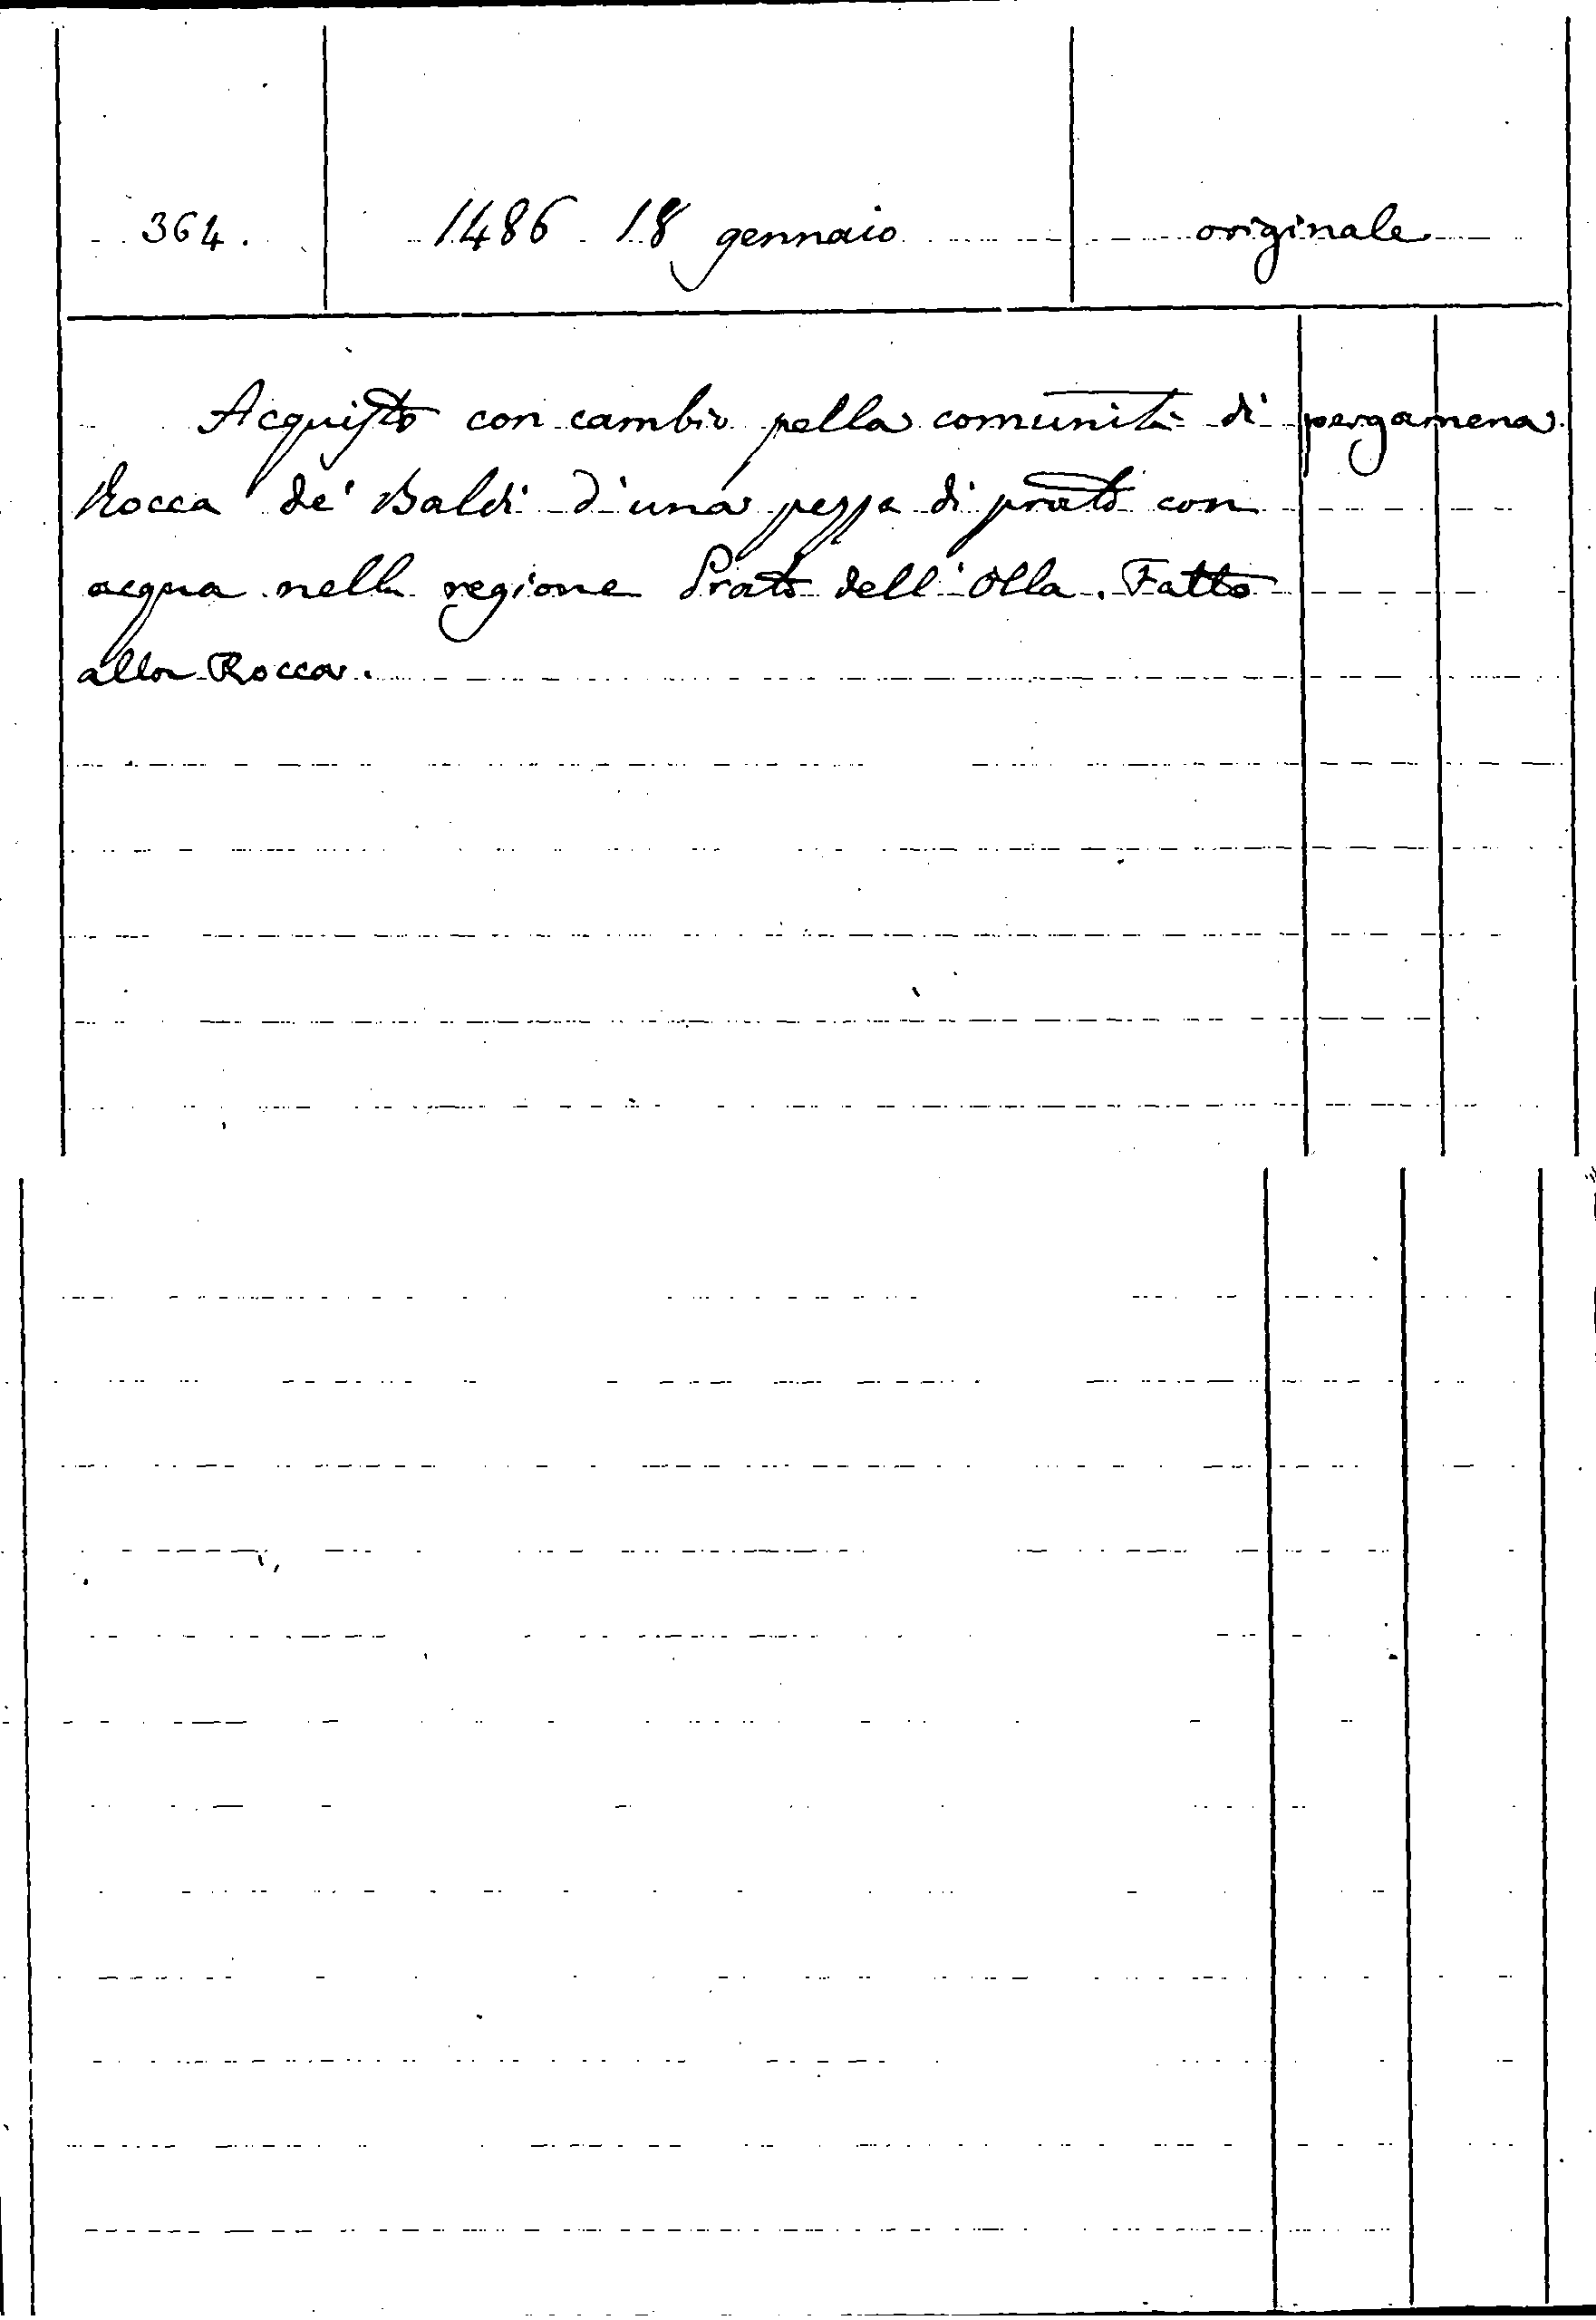 364. 1486 18 gennaio originale
Acquisto con cambio pella comunità di pergamena
Rocca de' Baldi d'una pezza di prato con
acqua nella regione Prato dell'Olla. Fatto
alla Rocca.